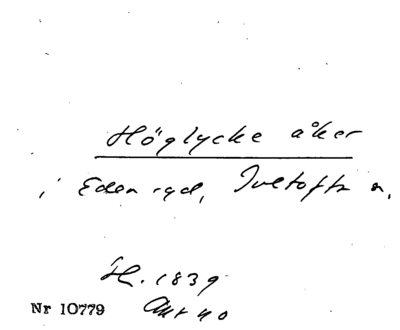 Höglycke åker
i Edenryd, Ivetofta s.
H. 1839
Akt no
Nr 10779